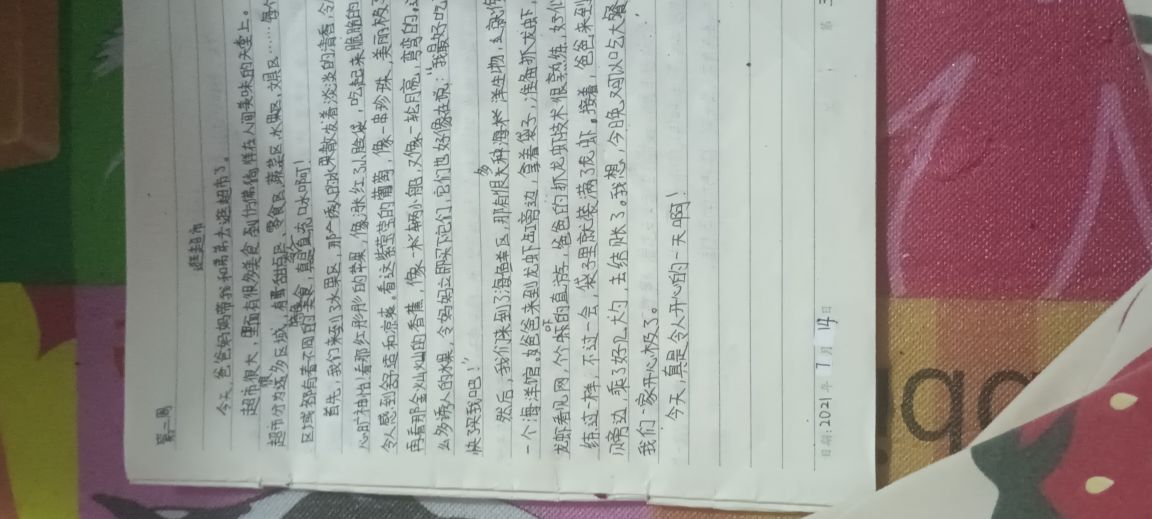 第二周
逛超市
今天,爸爸妈妈带我和弟弟去逛超市了。
超市很大,里面有很多美食,到仿佛徜徉在人间美味的天堂上。
超市分为很多区域,有甜品区、零食区、蔬菜区、水果区、奶果区……每个
区域都有着不同的美食,真是令人直流口水啊!
首先,我们来到了水果区,那个诱人的水果散发着淡淡的清香,令
心旷神怡!看那红彤彤的苹果,像涨红了小脸袋,吃起来脆脆的
令人感到舒适和凉爽。看这紫莹莹的葡萄,像一串珍珠,美丽极了
再看那金灿灿的香蕉,像一水辆小船,又像一轮月亮,弯弯的
么多诱人的水果,令妈妈立即买下它们,它们也好像在说:“我最好吃
快买我吧!”
然后,我们来到了海鲜区,那有很多种海洋生物,么就像
一个海洋馆。爸爸来到龙虾缸旁边,拿着袋子,准备抓龙虾,
龙虾看见网,个个吓的直游,爸爸的抓龙虾技术很熟练,好似
练过一样,不过一会,袋子里就装满了龙虾。接着,爸爸来到
旁边,乘了好几大勺,去结账了。我想,今晚又可以吃大餐
我们一家开心极了。
今天,真是令人开心的一天啊!
日期:2021年7月14日
第